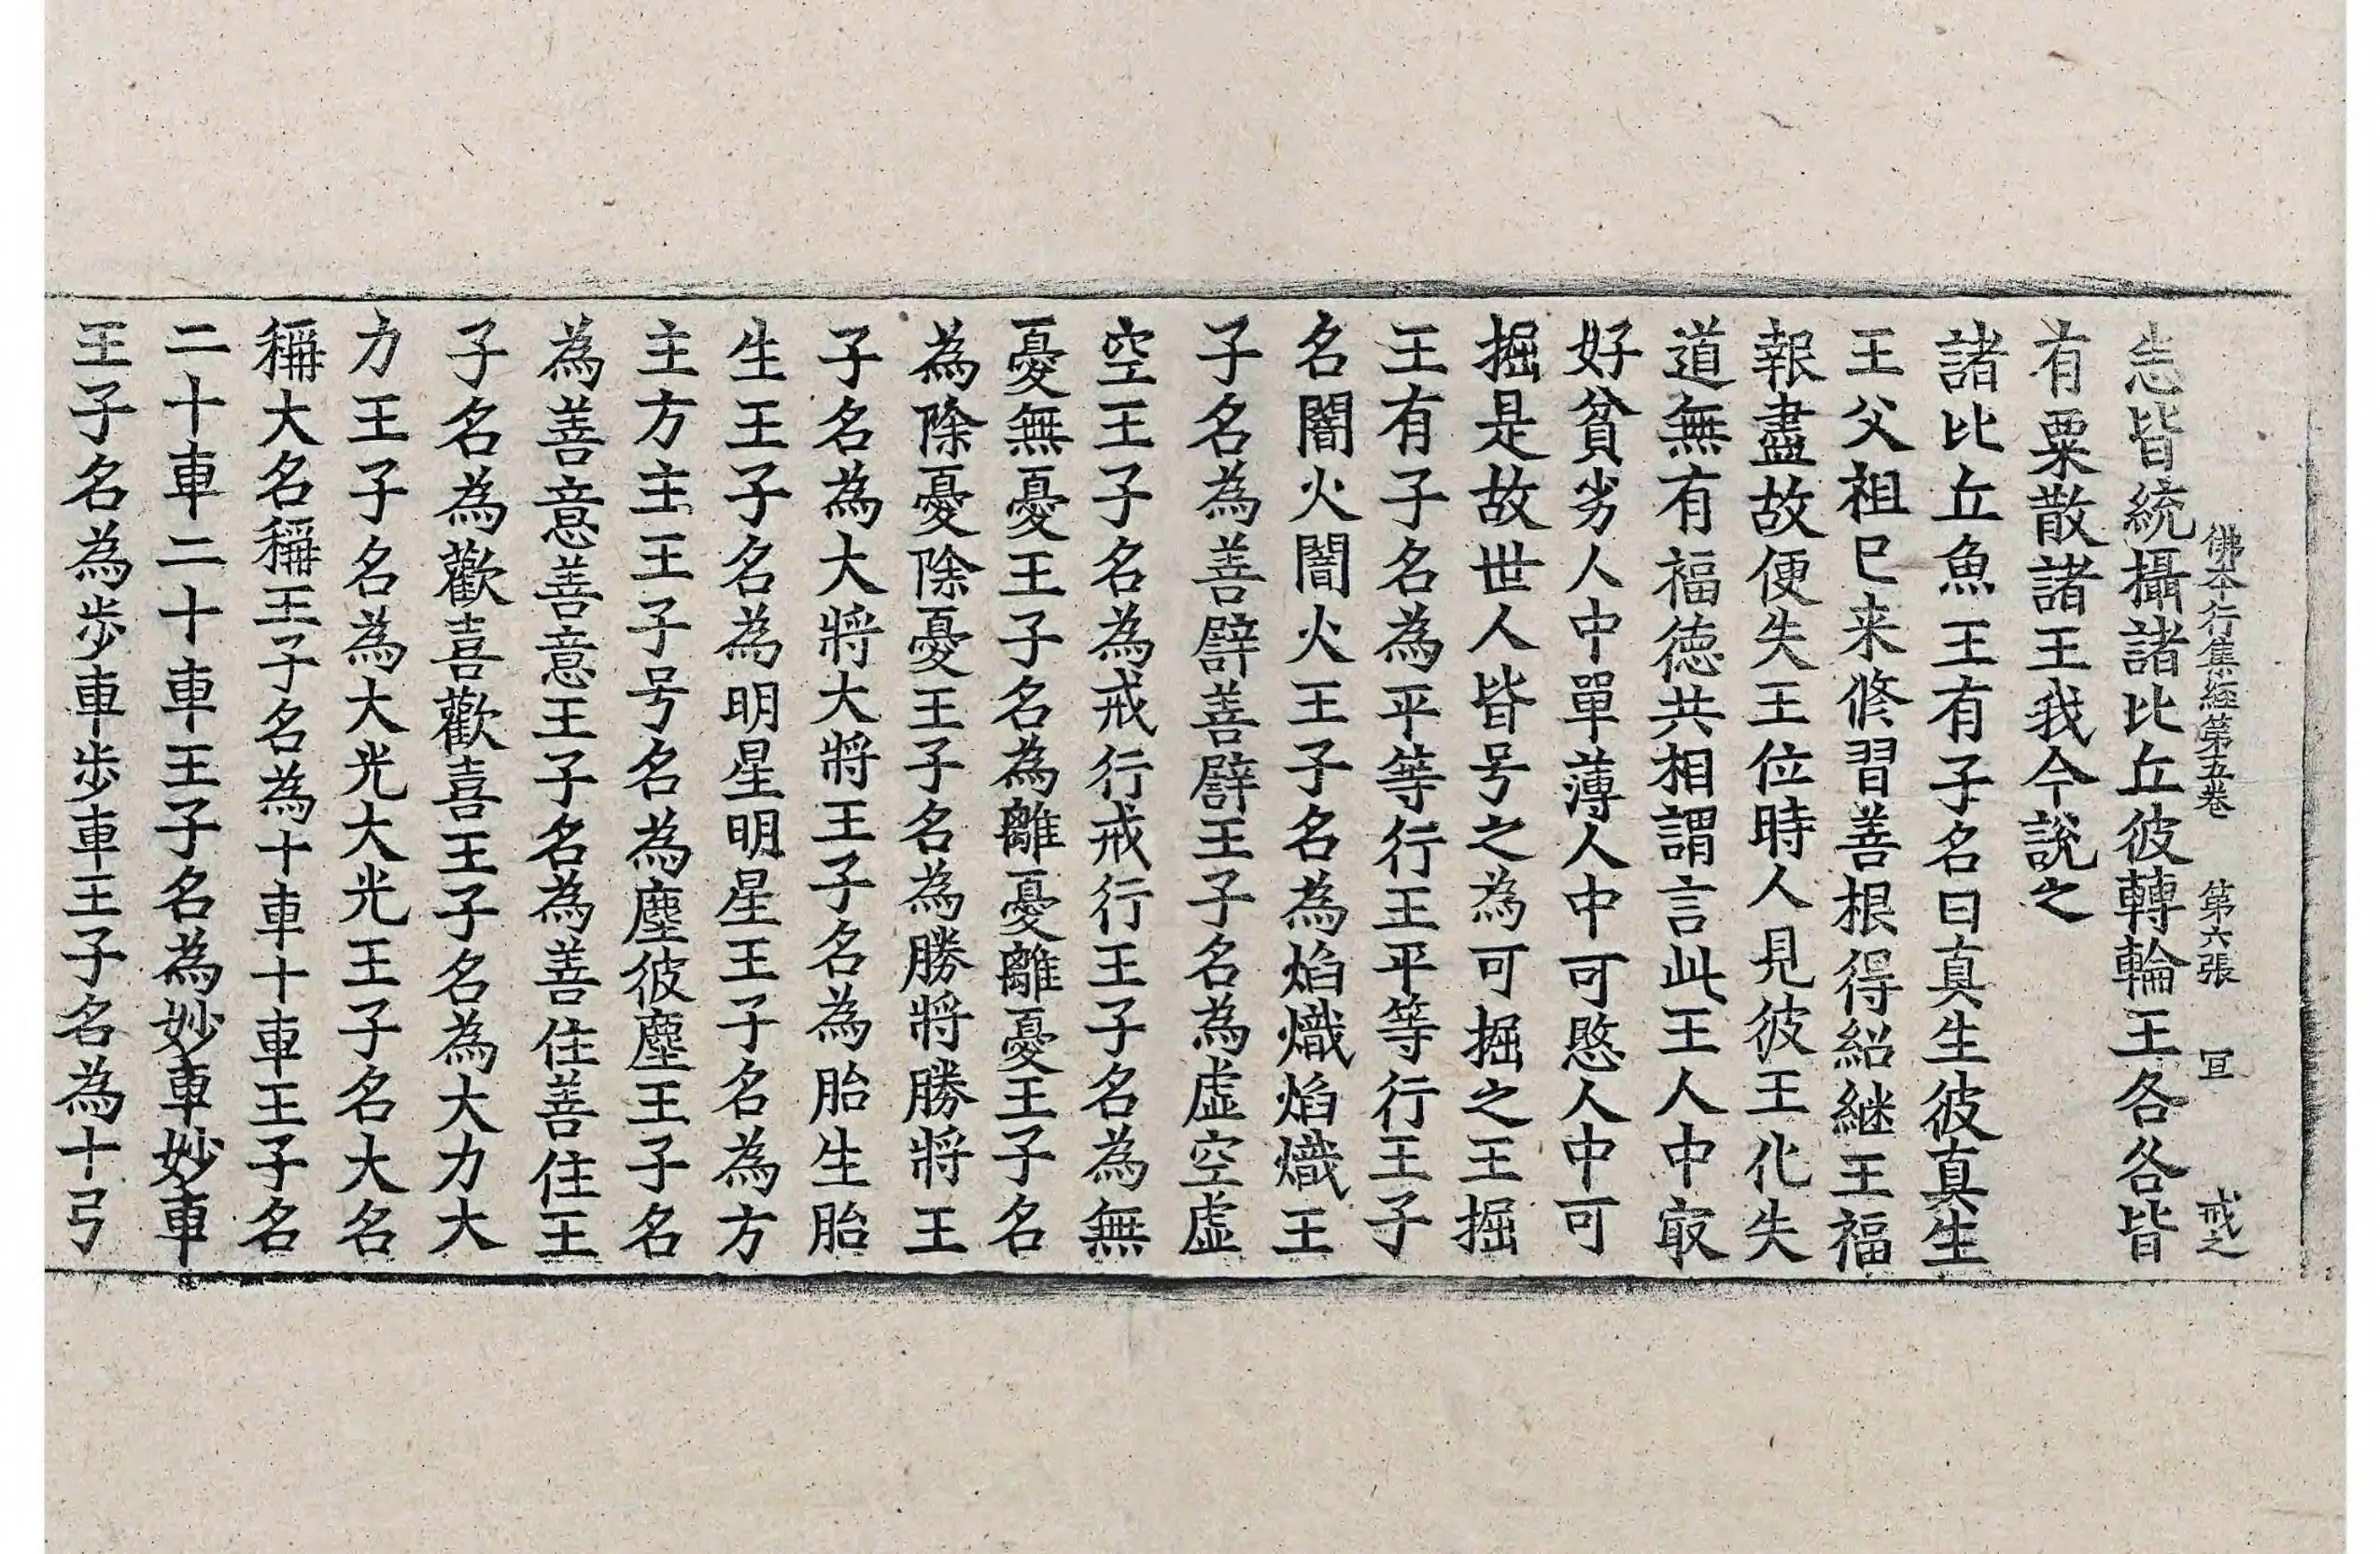 佛本行集經第五卷 第六張 冝 戒之
悉皆統攝諸比丘彼轉輪王各各皆
有粟散諸王我今說之
諸比丘魚王有子名曰真生彼真生
王父祖已来修習善根得紹継王福
報盡故便失王位時人見彼王化失
道無有福徳共相謂言此王人中㝡
好貧劣人中單薄人中可愍人中可
掘是故世人皆号之為可掘之王掘
王有子名為平等行王平等行王子
名闇火闇火王子名為焰熾焰熾王
子名為善譬善譬王子名為虛空虛
空王子名為戒行戒行王子名為無
憂無憂王子名為離憂離憂王子名
為除憂除憂王子名為勝将勝将王
子名為大将大将王子名為胎生胎
生王子名為明星明星王子名為方
主方主王子号名為塵彼塵王子名
為善意善意王子名為善住善住王
子名為歡喜歡喜王子名為大力大
力王子名為大光大光王子名大名
稱大名稱王子名為十車十車王子名
二十車二十車王子名為妙車妙車
王子名為歩車歩車王子名為十弓